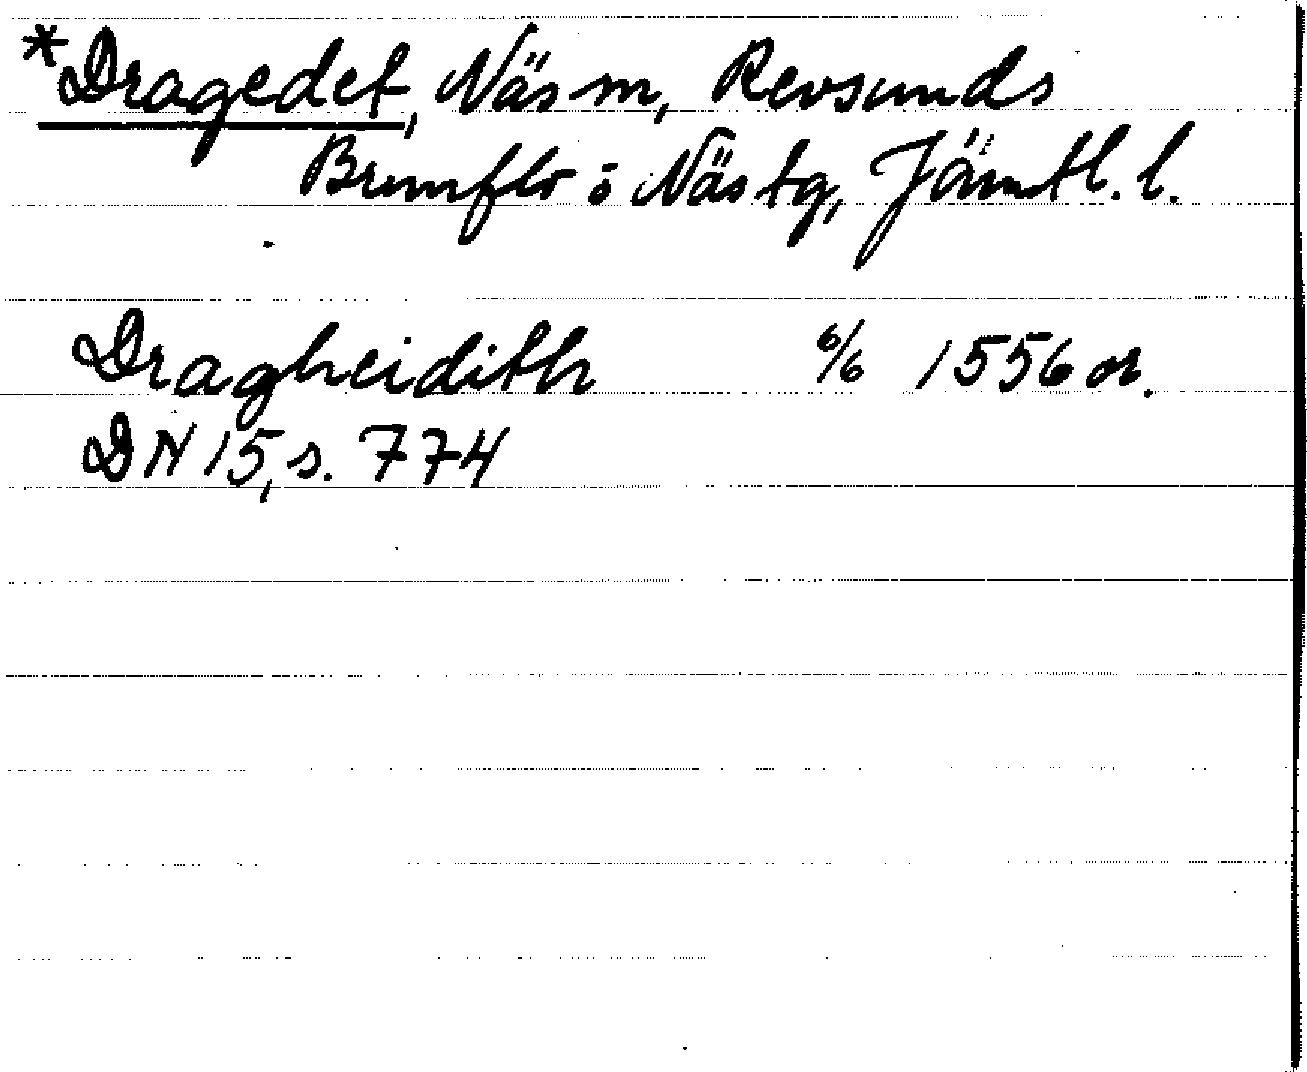 *Dragedet, Näs sn, Revsunds
Brunflo o Näs tg, Jämtl. l.
Dragheidith 6/6 1556 or.
DN 15, s. 774